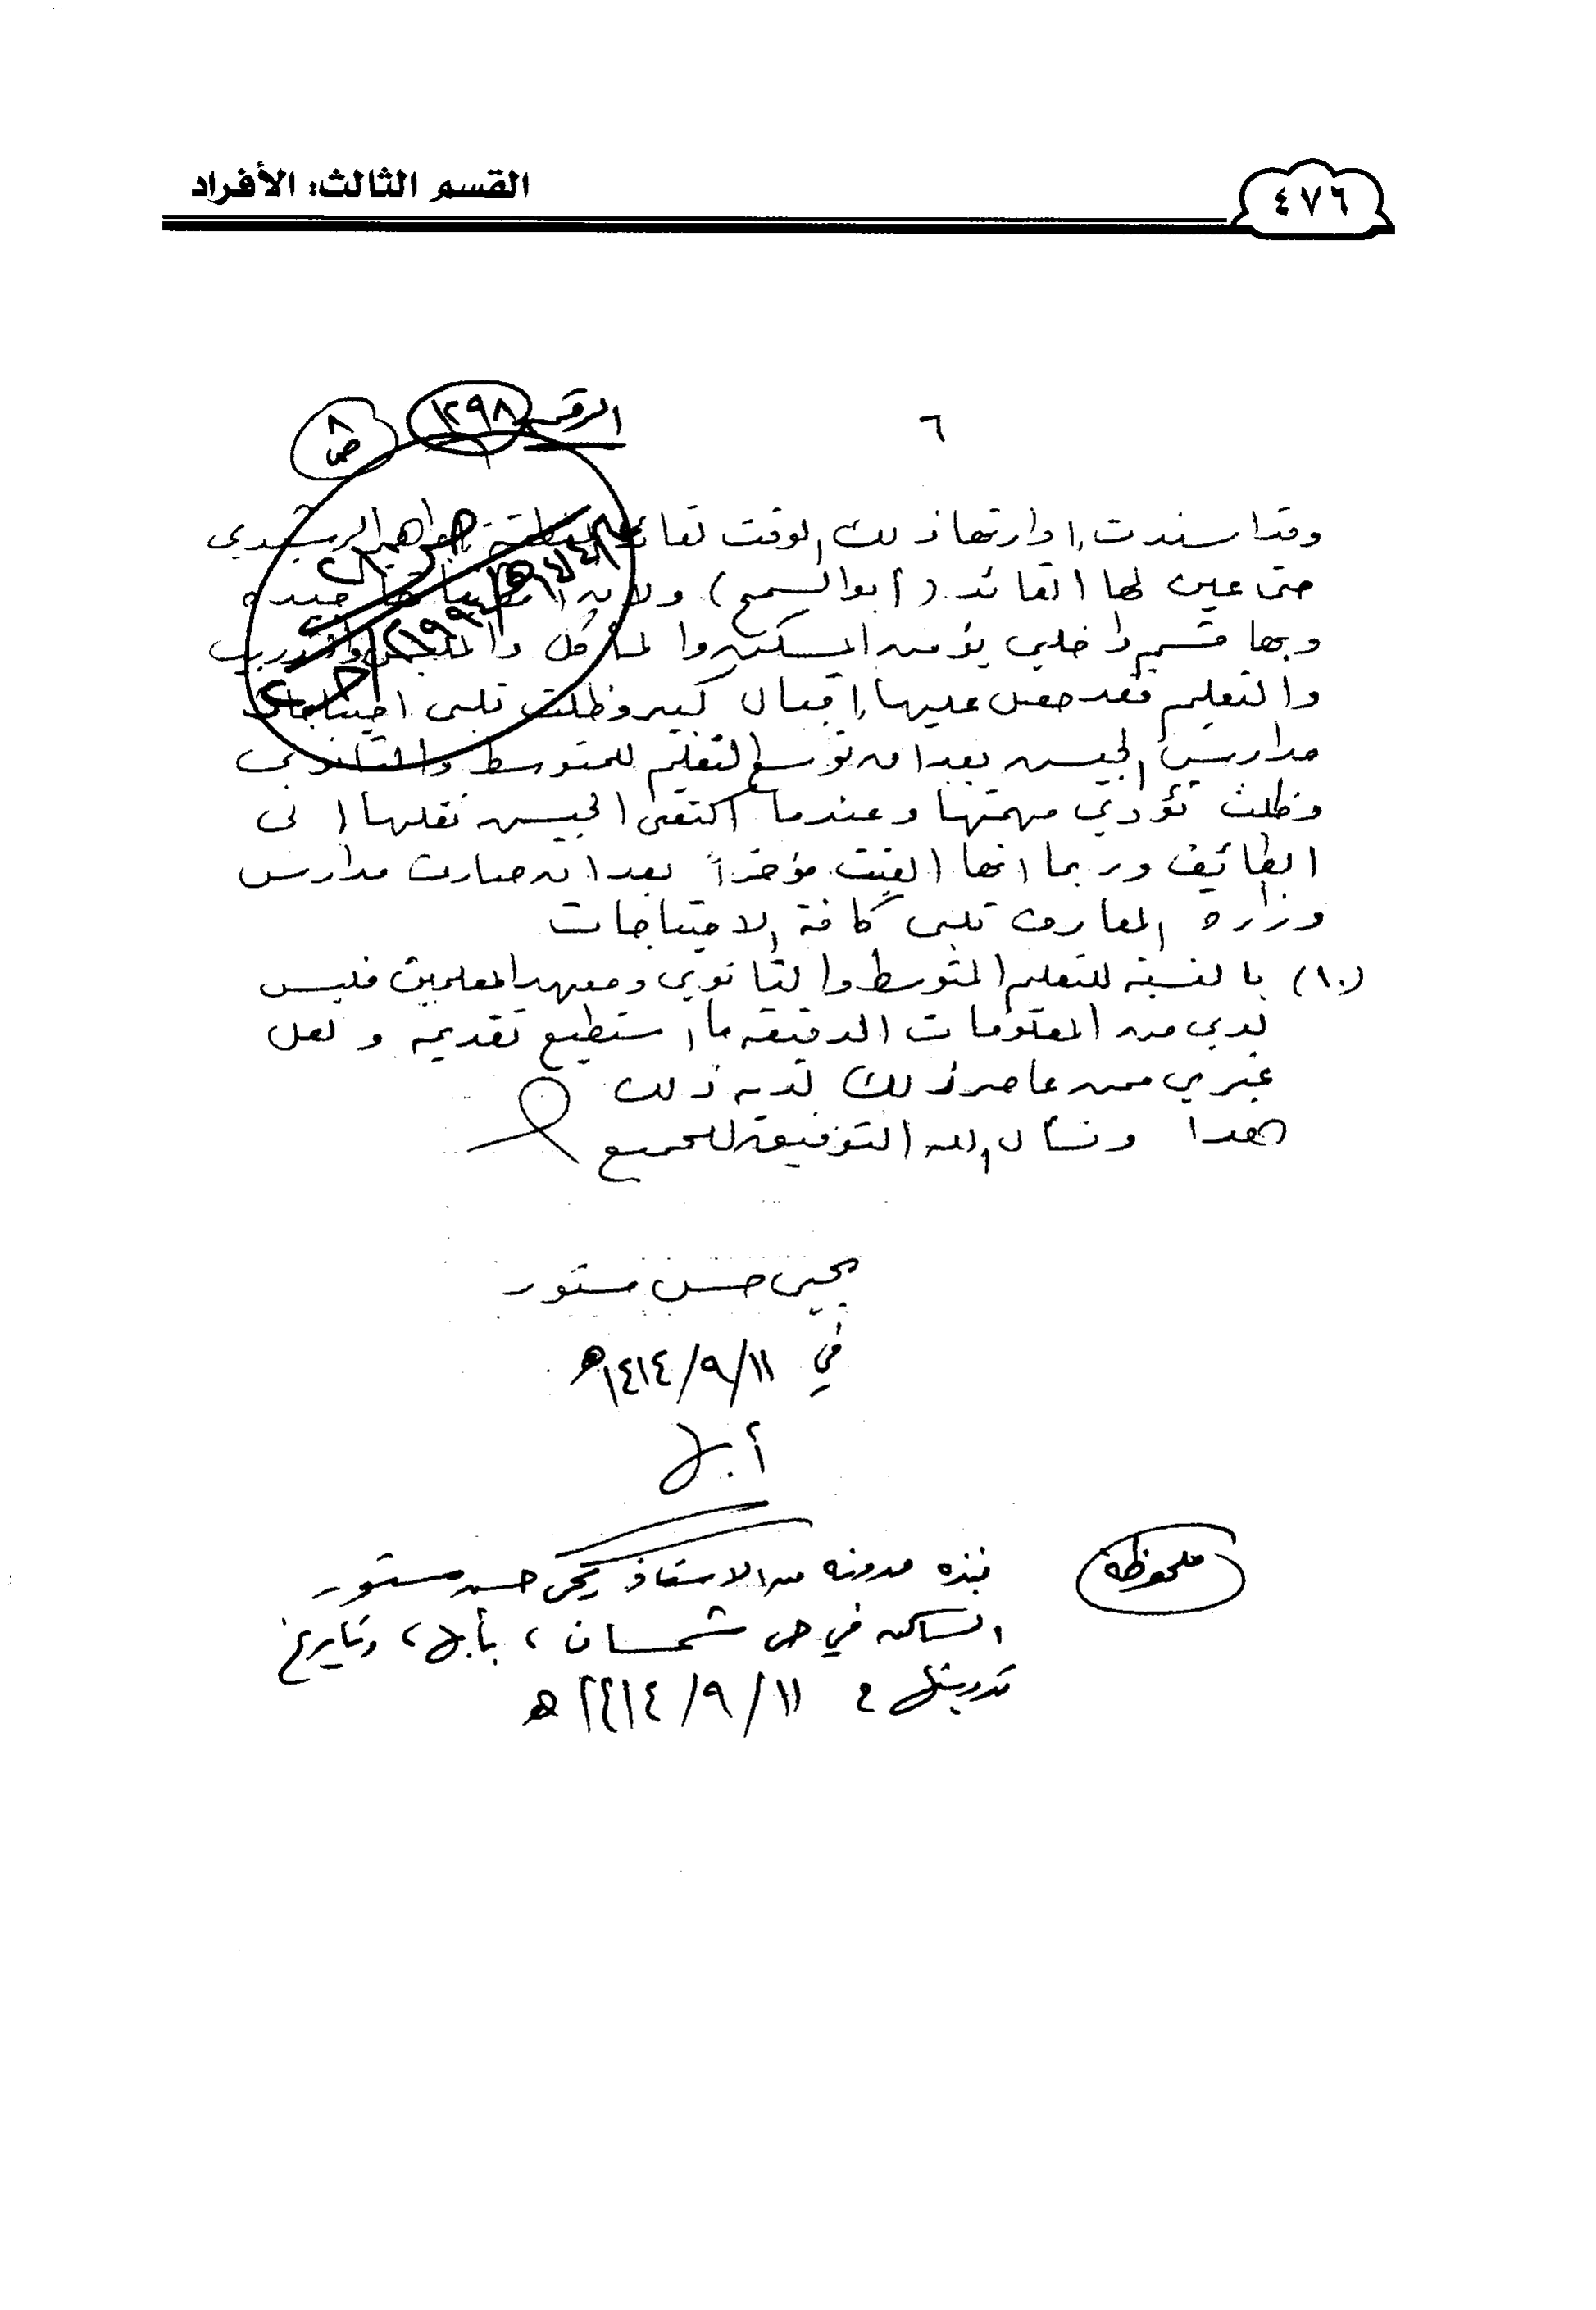 القسم الثالث: الأفراد
٤٧٦
٦
الرقم ١٢٩٨
ص ٨
وقد اسندت ادارتها ذلك الوقت لقائد المنطقة ابراهيم الرشيدي
حتى عين لها القائد (أبو السمح) ولان جيده
وبها قسم داخلي يؤمن المسكن والمأكل والملبس والتدريب
والتعليم فقد حصل عليها اقبال كبير وظلت تلبي احتياجات
مدارس الجيش بعد ان توسع التعليم للمتوسط والثانوي
وظلت تؤدي مهمتها وعندما اكتفى الجيش نقلها الى
الطائف وربما انها الغيت مؤخراً بعد ان صارت مدارس
وزاره المعارف تلبي كافة الاحتياجات
(١٠) بالنسبه للتعليم المتوسط والثانوي ومعهد المعلمين فليس
لدي من المعلومات الدقيقه ما استطيع تقديمه ولعل
غيري ممن عاصر ذلك لديه ذلك
هذا ونسأل الله التوفيق للجميع
يحيى حسن مستور
في ١٤١٤/٩/١١هـ
أبها
ملحوظة
نبذه مدونه من الاستاذ يحيى حسن مستور
الساكن في حي شمسان ، بأبها ، وتاريخ
تدوينها في ١٤١٤/٩/١١ هـ